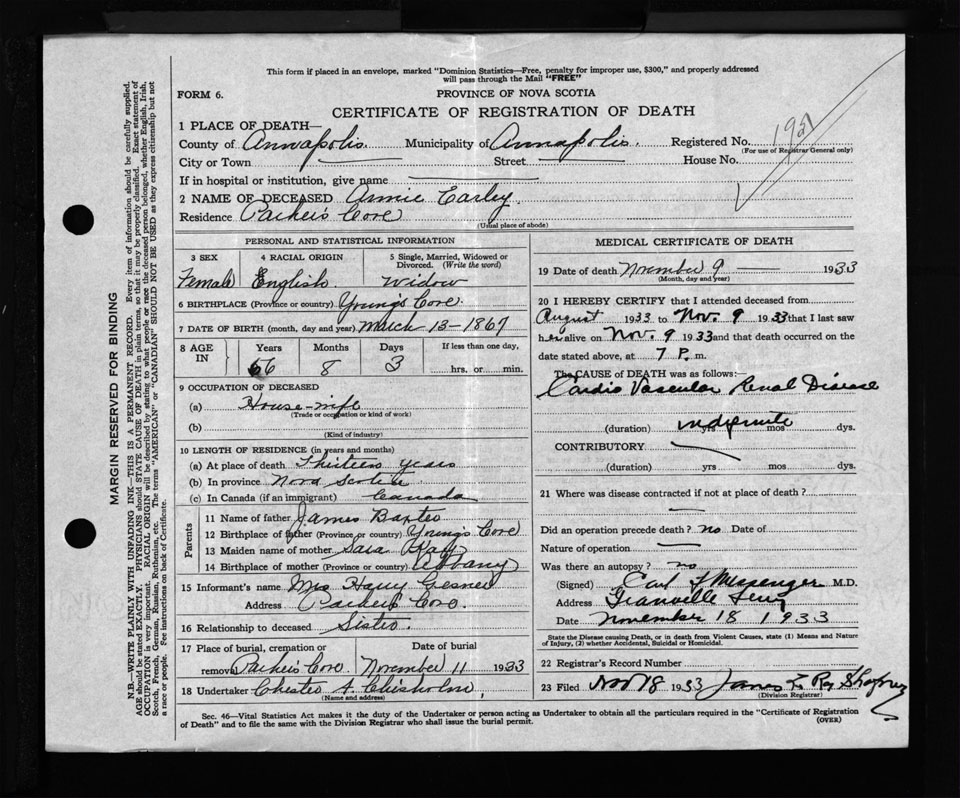 This form if placed in an envelope, marked "Dominion Statistics—Free, penalty for improper use, $300," and properly addressed
will pass through the Mail "FREE"
FORM 6.
PROVINCE OF NOVA SCOTIA
CERTIFICATE OF REGISTRATION OF DEATH
1 PLACE OF DEATH—
County of Annapolis. Municipality of Annapolis. Registered No.
(For use of Registrar General only)
City or Town Street House No.
If in hospital or institution, give name
2 NAME OF DECEASED Annie Earley
Residence Parker's Cove
(Usual place of abode)
PERSONAL AND STATISTICAL INFORMATION
3 SEX 4 RACIAL ORIGIN 5 Single, Married, Widowed or
Divorced. (Write the word)
Female English Widow
6 BIRTHPLACE (Province or country) Young's Cove.
7 DATE OF BIRTH (month, day and year) March 13-1867
8 AGE IN Years Months Days If less than one day,
66 8 3 hrs. or min.
9 OCCUPATION OF DECEASED
(a) House-wife
(Trade or occupation or kind of work)
(b)
(Kind of industry)
10 LENGTH OF RESIDENCE (in years and months)
(a) At place of death Thirteen years
(b) In province Nova Scotia
(c) In Canada (if an immigrant) Canada
Parents
11 Name of father James Baxter
12 Birthplace of father (Province or country) Young's Cove
13 Maiden name of mother Sara
14 Birthplace of mother (Province or country) Albany
15 Informant's name Mrs Harry Gesner
Address Parker's Cove.
16 Relationship to deceased Sister.
17 Place of burial, cremation or Date of burial
removal Parker's Cove November 11 1933
18 Undertaker Chester A. Chisholm,
(Name and address)
MEDICAL CERTIFICATE OF DEATH
19 Date of death November 9 — 1933
(Month, day and year)
20 I HEREBY CERTIFY that I attended deceased from
August 1933 to Nov. 9 1933 that I last saw
her alive on Nov. 9 1933 and that death occurred on the
date stated above, at 7 P. m.
The CAUSE OF DEATH was as follows:—
Cardio Vascular Renal Disease
(duration) yrs mos dys.
indefinite
CONTRIBUTORY
(duration) yrs mos dys.
21 Where was disease contracted if not at place of death?
Did an operation precede death? no Date of
Nature of operation
Was there an autopsy? no
(Signed) Carl Messenger M.D.
Address Granville Ferry
Date November 18 1933
State the Disease causing Death, or in death from Violent Causes, state (1) Means and Nature
of Injury, (2) whether Accidental, Suicidal or Homicidal.
22 Registrar's Record Number
23 Filed Nov 18 1933 James
(Division Registrar)
Sec. 46—Vital Statistics Act makes it the duty of the Undertaker or person acting as Undertaker to obtain all the particulars required in the "Certificate of Registration
of Death" and to file the same with the Division Registrar who shall issue the burial permit.
(OVER)
MARGIN RESERVED FOR BINDING
N.B.—WRITE PLAINLY WITH UNFADING INK—THIS IS A PERMANENT RECORD. Every item of information should be carefully supplied.
AGE should be stated EXACTLY. PHYSICIANS should STATE CAUSE OF DEATH in plain terms, so that it may be properly classified. Exact statement of
OCCUPATION is very important. RACIAL ORIGIN will be described by stating to what people or race the deceased person belonged, whether English, Irish,
Scotch, French, German, Russian, Ruthenian, etc. The terms "AMERICAN" or "CANADIAN" SHOULD NOT BE USED as they express citizenship but not
a race or people. Fee instructions on back of Certificate.